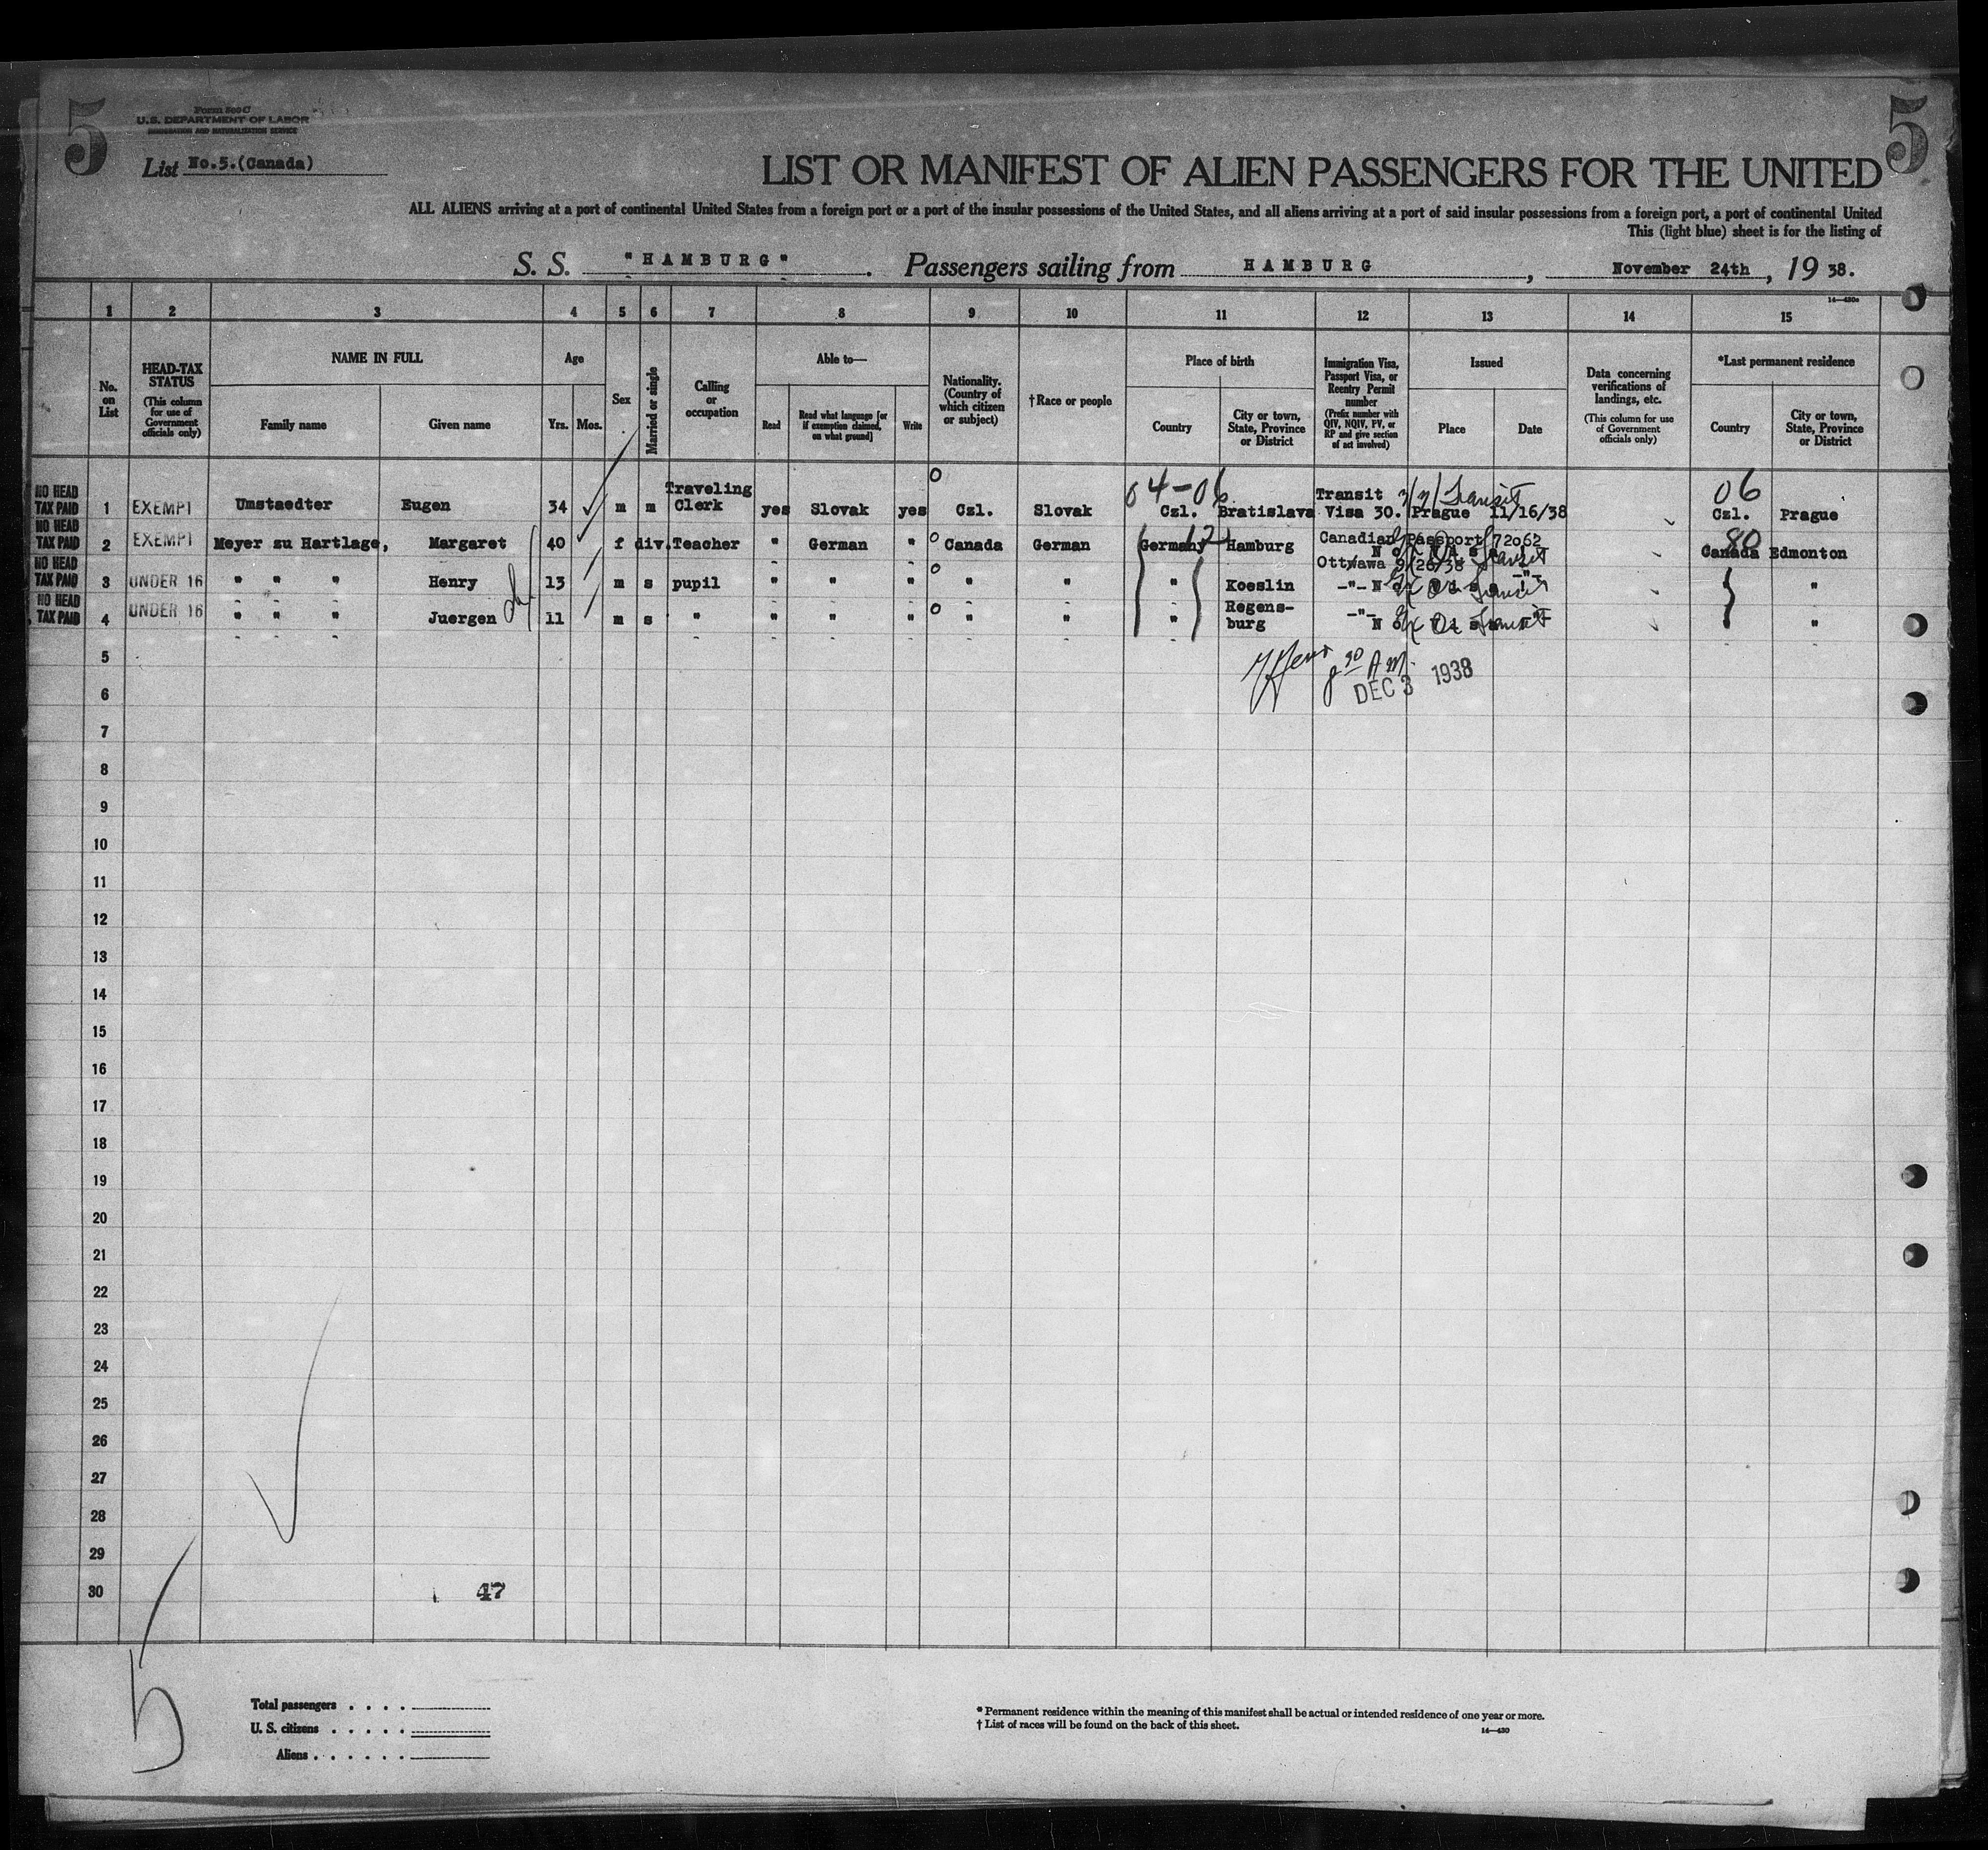 5
5
Form 500 C
U.S. DEPARTMENT OF LABOR
IMMIGRATION AND NATURALIZATION SERVICE
List No.5.(Canada)
LIST OR MANIFEST OF ALIEN PASSENGERS FOR THE UNITED
ALL ALIENS arriving at a port of continental United States from a foreign port or a port of the insular possessions of the United States, and all aliens arriving at a port of said insular possessions from a foreign port, a port of continental United
This (light blue) sheet is for the listing of
S. S. "HAMBURG" . Passengers sailing from HAMBURG , November 24th , 19 38.
14—430a
1 2 3 4 5 6 7 8 9 10 11 12 13 14 15
No. on List
HEAD-TAX STATUS (This column for use of Government officials only)
NAME IN FULL
Family name Given name
Age
Yrs. Mos.
Sex
Married or single
Calling or occupation
Able to—
Read Read what language [or if exemption claimed, on what ground] Write
Nationality. (Country of which citizen or subject)
†Race or people
Place of birth
Country City or town, State, Province or District
Immigration Visa, Passport Visa, or Reentry Permit number (Prefix number with QIV, NQIV, PV, or RP and give section of act involved)
Issued
Place Date
Data concerning verifications of landings, etc. (This column for use of Government officials only)
*Last permanent residence
Country City or town, State, Province or District
04-06 06
NO HEAD TAX PAID 1 EXEMPT Umstaedter Eugen 34 m m Traveling Clerk yes Slovak yes Czl. Slovak Czl. Bratislava Transit Visa 30. Prague 11/16/38 Transit Czl. Prague
12 80
NO HEAD TAX PAID 2 EXEMPT Meyer zu Hartlage, Margaret 40 f div. Teacher " German " Canada German Germany Hamburg Canadian Passport 72062 No Visa Transit Canada Edmonton
Ottawa 9/26/38
NO HEAD TAX PAID 3 UNDER 16 " " " Henry 13 m s pupil " " " " " " Koeslin -"- No Visa -"- Transit "
NO HEAD TAX PAID 4 UNDER 16 " " " Juergen 11 m s " " " " " " " Regens-burg -"- No Visa -"- Transit "
5
830 AM
DEC 3 1938
6
7
8
9
10
11
12
13
14
15
16
17
18
19
20
21
22
23
24
25
26
27
28
29
30
47
5
Total passengers . . . .
U. S. citizens . . . . .
Aliens . . . . . .
* Permanent residence within the meaning of this manifest shall be actual or intended residence of one year or more.
† List of races will be found on the back of this sheet.
14—430